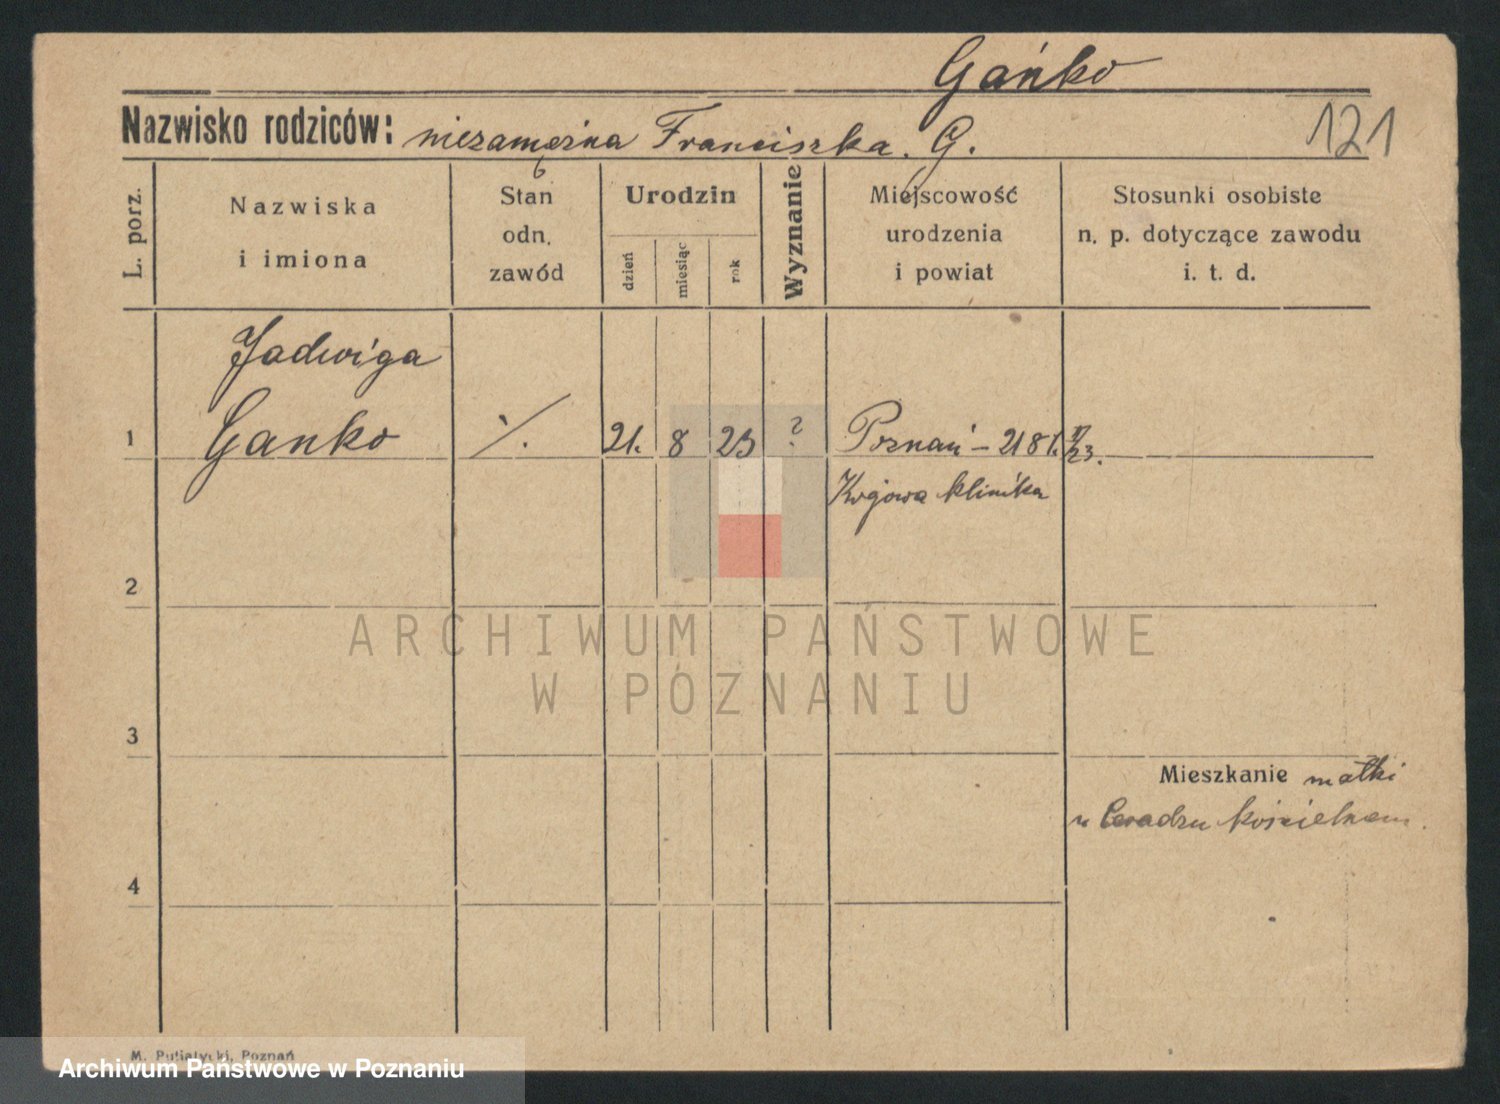 Gańko
Nazwisko rodziców: niezamężna Franciszka. G.
121
L. porz.
Nazwiska
i imiona
Stan
odn.
zawód
Urodzin
dzień
miesiąc
rok
Wyznanie
Miejscowość
urodzenia
i powiat
Stosunki osobiste
n. p. dotyczące zawodu
i. t. d.
Jadwiga
1 Ganko ·/. 21. 8 23 ? Poznań - 21 8
Krajowa klinika
2
ARCHIWUM PAŃSTWOWE
W POZNANIU
3
Mieszkanie matki
w Ceradzu kościelnem.
4
M. Putiatycki, Poznań
Archiwum Państwowe w Poznaniu